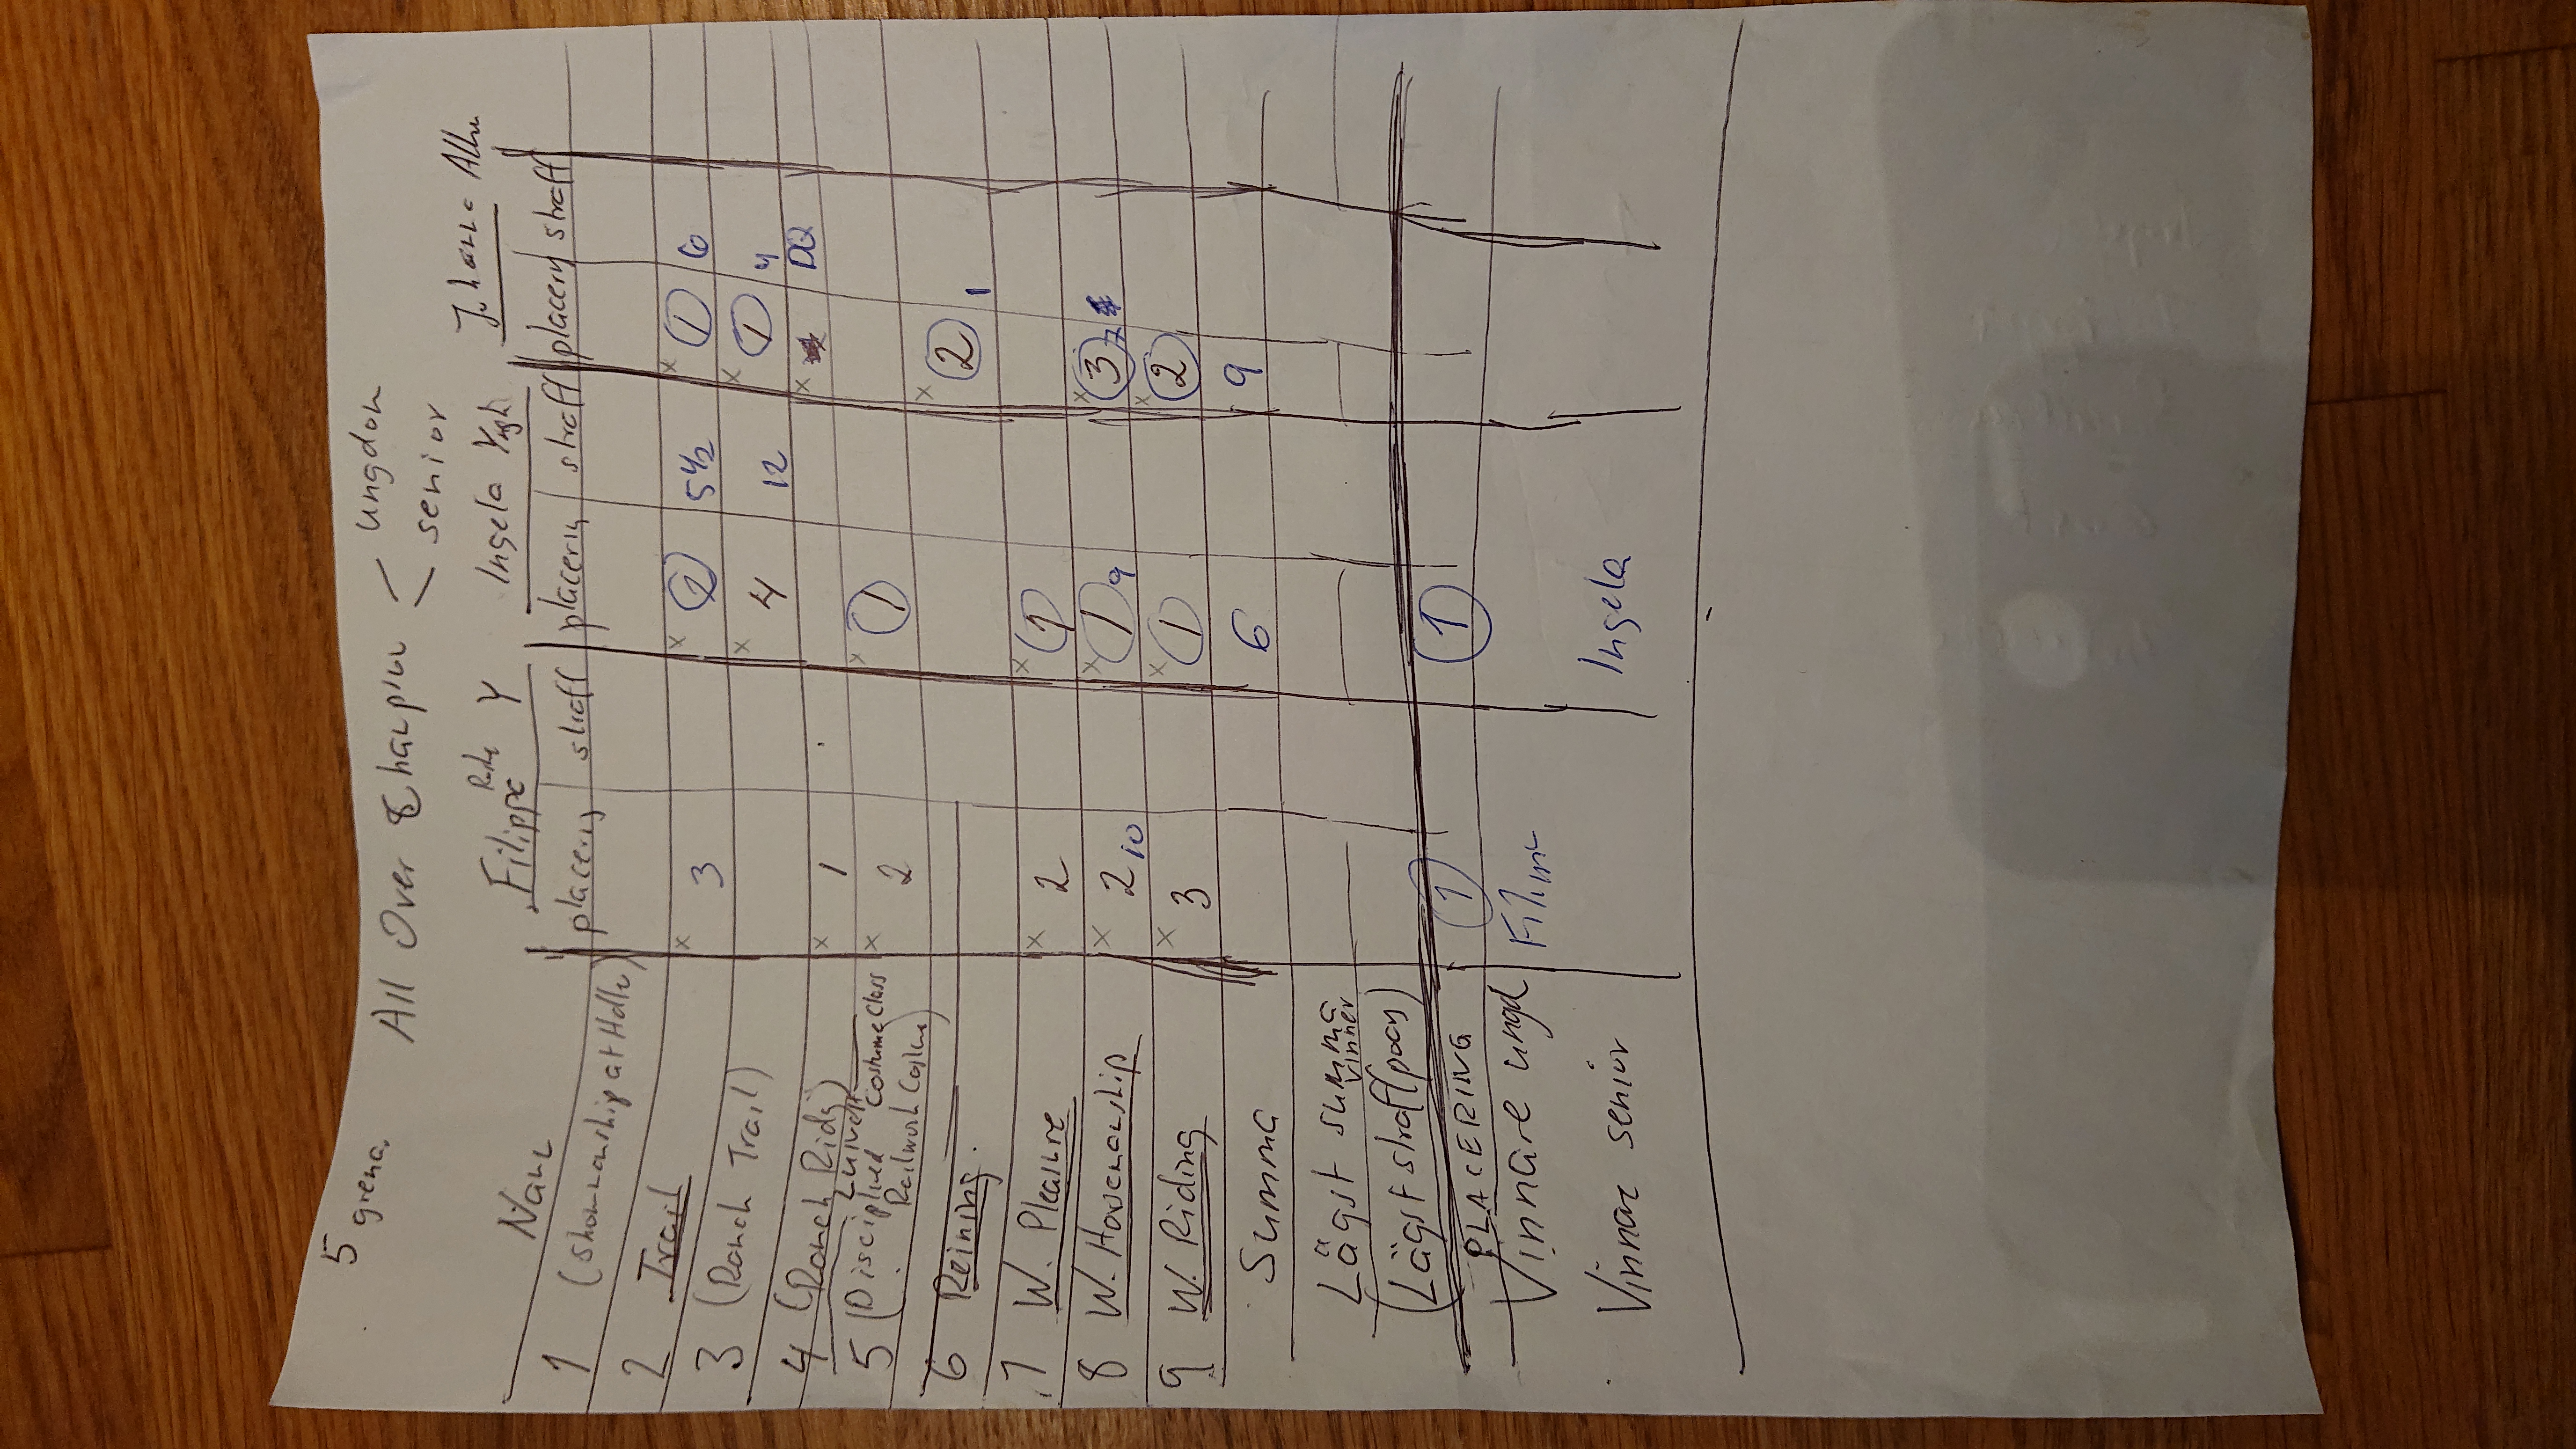 5 grenar
All Over Champion < ungdom
senior
Namn Filippa Y Ingela Johanne
placering straff placering straff placering straff
1 (Showmanship at Halter)
2 Trail x 3 x 2 5 1/2 x 1 6
3 (Ranch Trail) x 4 12 x 1 4
4 (Ranch Riding) x 1 x DQ
5 (Disciplined Costume Class x 2 x 1
Railwork Costume)
6 Reining x 2 1
7 W. Pleasure x 2 x 1
8 W. Horsemanship x 2 10 x 1 9 x 3
9 W. Riding x 3 x 1 x 2
Summa 6 9
Lägst summa
vinner
(Lägst straff (poäng)
PLACERING 1 1
Vinnare ungd
Vinnare senior Ingela